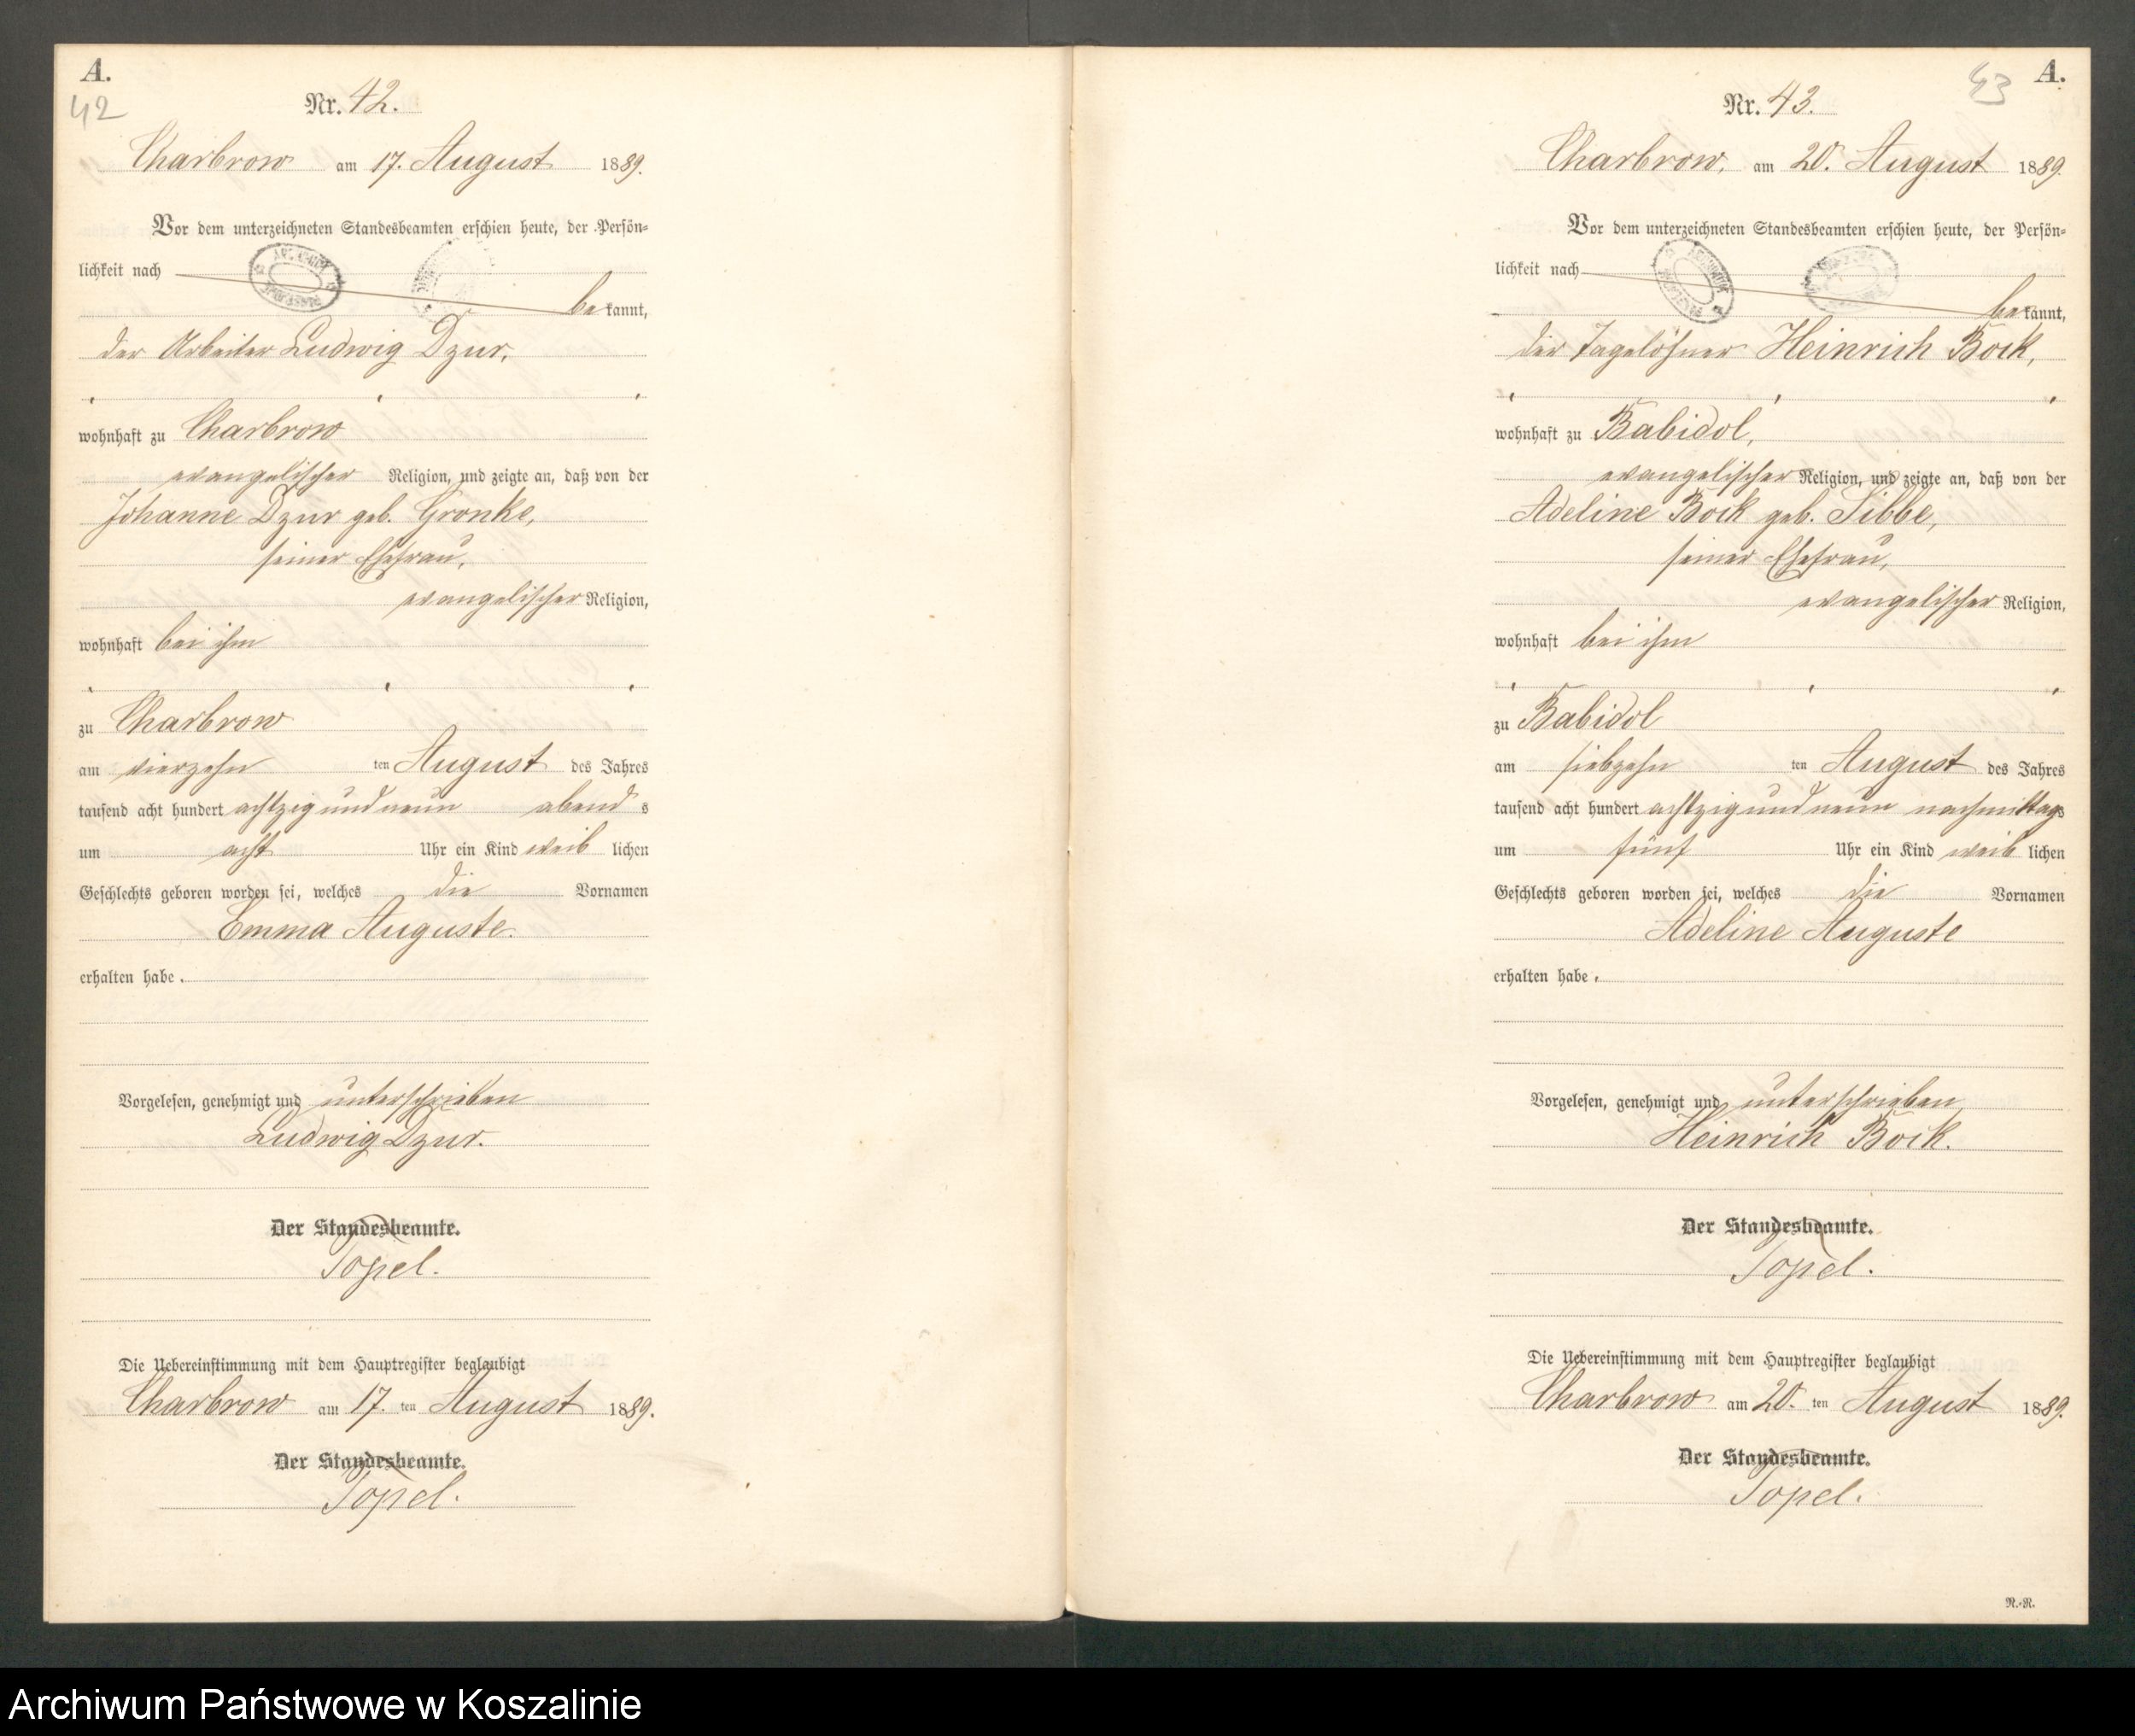 A.
42
Nr. 42.
Charbrow am 17. August 1889.
Vor dem unterzeichneten Standesbeamten erschien heute, der Persön-
lichkeit nach
bekannt,
der Arbeiter Ludwig Dzur,
wohnhaft zu Charbrow
evangelischer Religion, und zeigte an, daß von der
Johanne Dzur geb. Gronke,
seiner Ehefrau,
evangelischer Religion,
wohnhaft bei ihm
zu Charbrow
am vierzehn ten August des Jahres
tausend acht hundert achtzig und neun abends
um acht Uhr ein Kind weiblichen
Geschlechts geboren worden sei, welches die Vornamen
Emma Auguste.
erhalten habe.
Vorgelesen, genehmigt und unterschrieben
Ludwig Dzur.
Der Standesbeamte.
Topel.
Die Uebereinstimmung mit dem Hauptregister beglaubigt
Charbrow am 17. ten August 1889.
Der Standesbeamte.
Topel.
43
A.
Nr. 43.
Charbrow, am 20. August 1889.
Vor dem unterzeichneten Standesbeamten erschien heute, der Persön-
lichkeit nach
bekannt,
der Tagelöhner Heinrich Bock,
wohnhaft zu Babidol,
evangelischer Religion, und zeigte an, daß von der
Adeline Bock geb. Sibbe,
seiner Ehefrau,
evangelischer Religion,
wohnhaft bei ihm
zu Babidol
am siebzehn ten August des Jahres
tausend acht hundert achtzig und neun nachmittags
um fünf Uhr ein Kind weiblichen
Geschlechts geboren worden sei, welches die Vornamen
Adeline Auguste
erhalten habe.
Vorgelesen, genehmigt und unterschrieben
Heinrich Bock.
Der Standesbeamte.
Topel.
Die Uebereinstimmung mit dem Hauptregister beglaubigt
Charbrow am 20. ten August 1889.
Der Standesbeamte.
Topel.
R.-R.
Archiwum Państwowe w Koszalinie